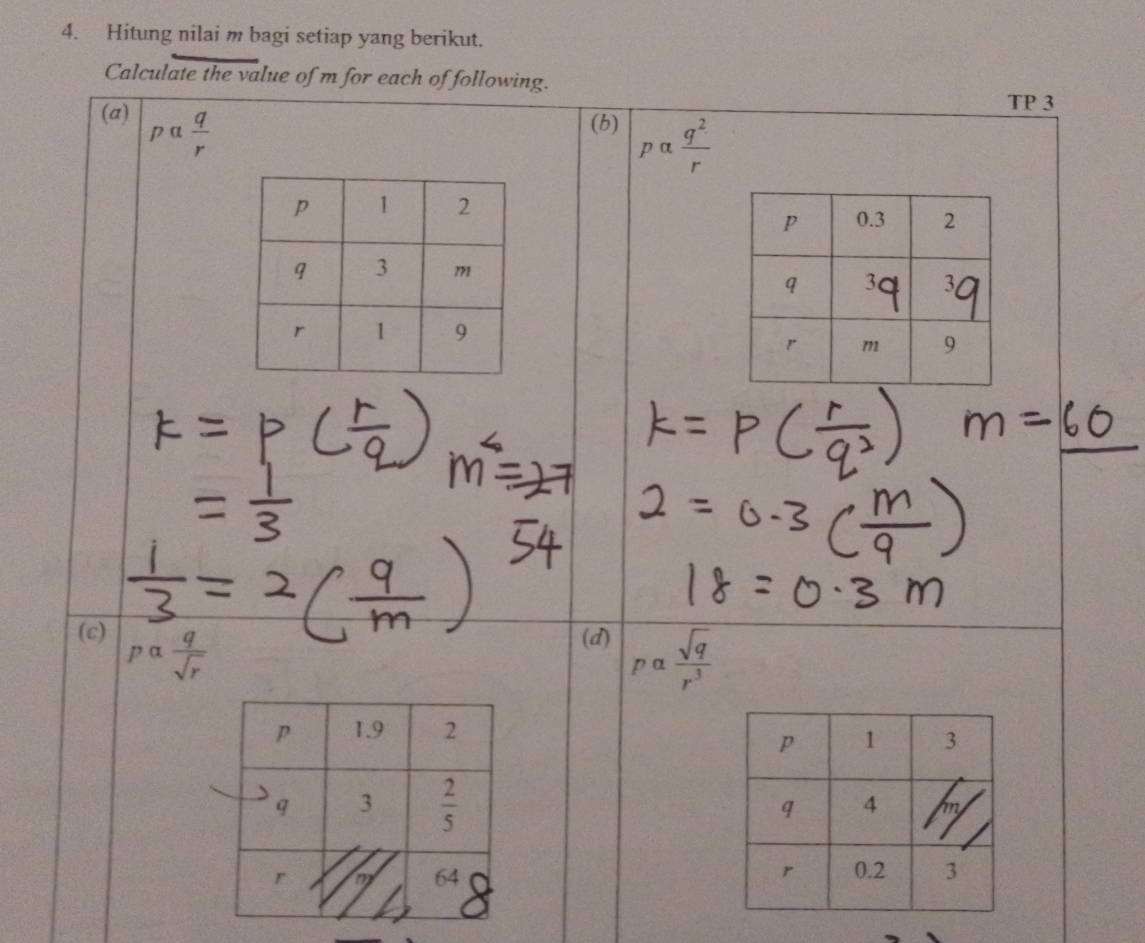 4. Hitung nilai m bagi setiap yang berikut.
Calculate the value of m for each of following.
TP 3
(a) p α q/r
p 1 2
q 3 m
r 1 9
k = p (r/q)
= 1/3
1/3 = 2 (9/m)
m = 27
54
(b) p α q²/r
p 0.3 2
q 3 9 3 9
r m 9
k = p (r/q²)
m = 60
2 = 0.3 (m/9)
18 = 0.3 m
(c) p α q/√r
p 1.9 2
q 3 2/5
r m 64 8
(d) p α √q/r³
p 1 3
q 4 m
r 0.2 3